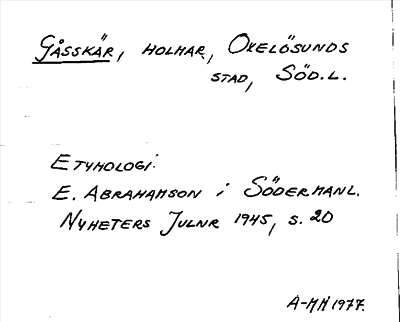 Gåsskär, holmar, Oxelösunds
stad, Söd.l.
Etymologi:
E. Abrahamson i Södermanl.
Nyheters Julnr 1945, s. 20
A-MH 1977.